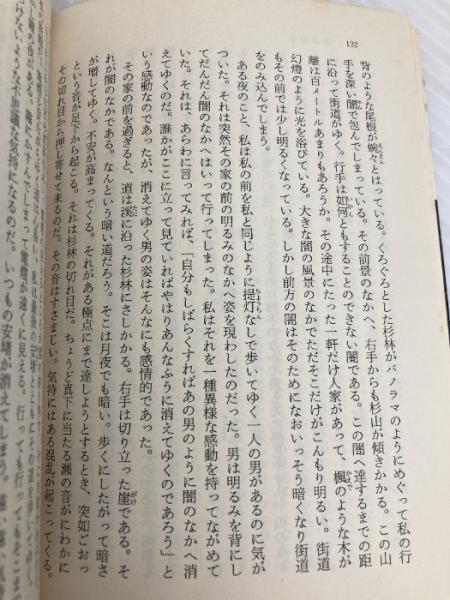 132
背のような尾根が蜿々とはっている。くろぐろとした杉林がパノラマのようにめぐって私の行
手を深い闇で包んでしまっている。その前景のなかへ、右手からも杉山が傾きかかる。この山
に沿って街道がゆく。行手は如何ともすることのできない闇である。この闇へ達するまでの距
離は百メートルあまりもあろうか。その途中にたった一軒だけ人家があって、楓のような木が
幻燈のように光を浴びている。大きな闇の風景のなかでただそこだけがこんもり明るい。街道
もその前では少し明るくなっている。しかし前方の闇はそのためになおいっそう暗くなり街道
をのみ込んでしまう。
ある夜のこと、私は私の前を私と同じように提灯なしで歩いてゆく一人の男があるのに気が
ついた。それは突然その家の前の明るみのなかへ姿を現わしたのだった。男は明るみを背にし
てだんだん闇のなかへはいって行ってしまった。私はそれを一種異様な感動を持ってながめて
いた。それは、あらわに言ってみれば、「自分もしばらくすればあの男のように闇のなかへ消
えてゆくのだ。誰かがここに立って見ていればやはりあんなふうに消えてゆくのであろう」と
いう感動なのであったが、消えてゆく男の姿はそんなにも感情的であった。
その家の前を過ぎると、道は渓に沿った杉林にさしかかる。右手は切り立った崖である。そ
れが闇のなかである。なんという暗い道だろう。そこは月夜でも暗い。歩くにしたがって暗さ
が増してゆく。不安が高まってくる。それがある極点にまで達しようとするとき、突如ごおっ
という音が足下から起こる。それは杉林の切れ目だ。ちょうど真下に当たる瀬の音がにわかに
その切れ目から押し寄せて来るのだ。その音はすさまじい。気持にはある混乱が起こってくる。
ような不思議な気持になるのだ。いつもの安堵が消えてしまう。